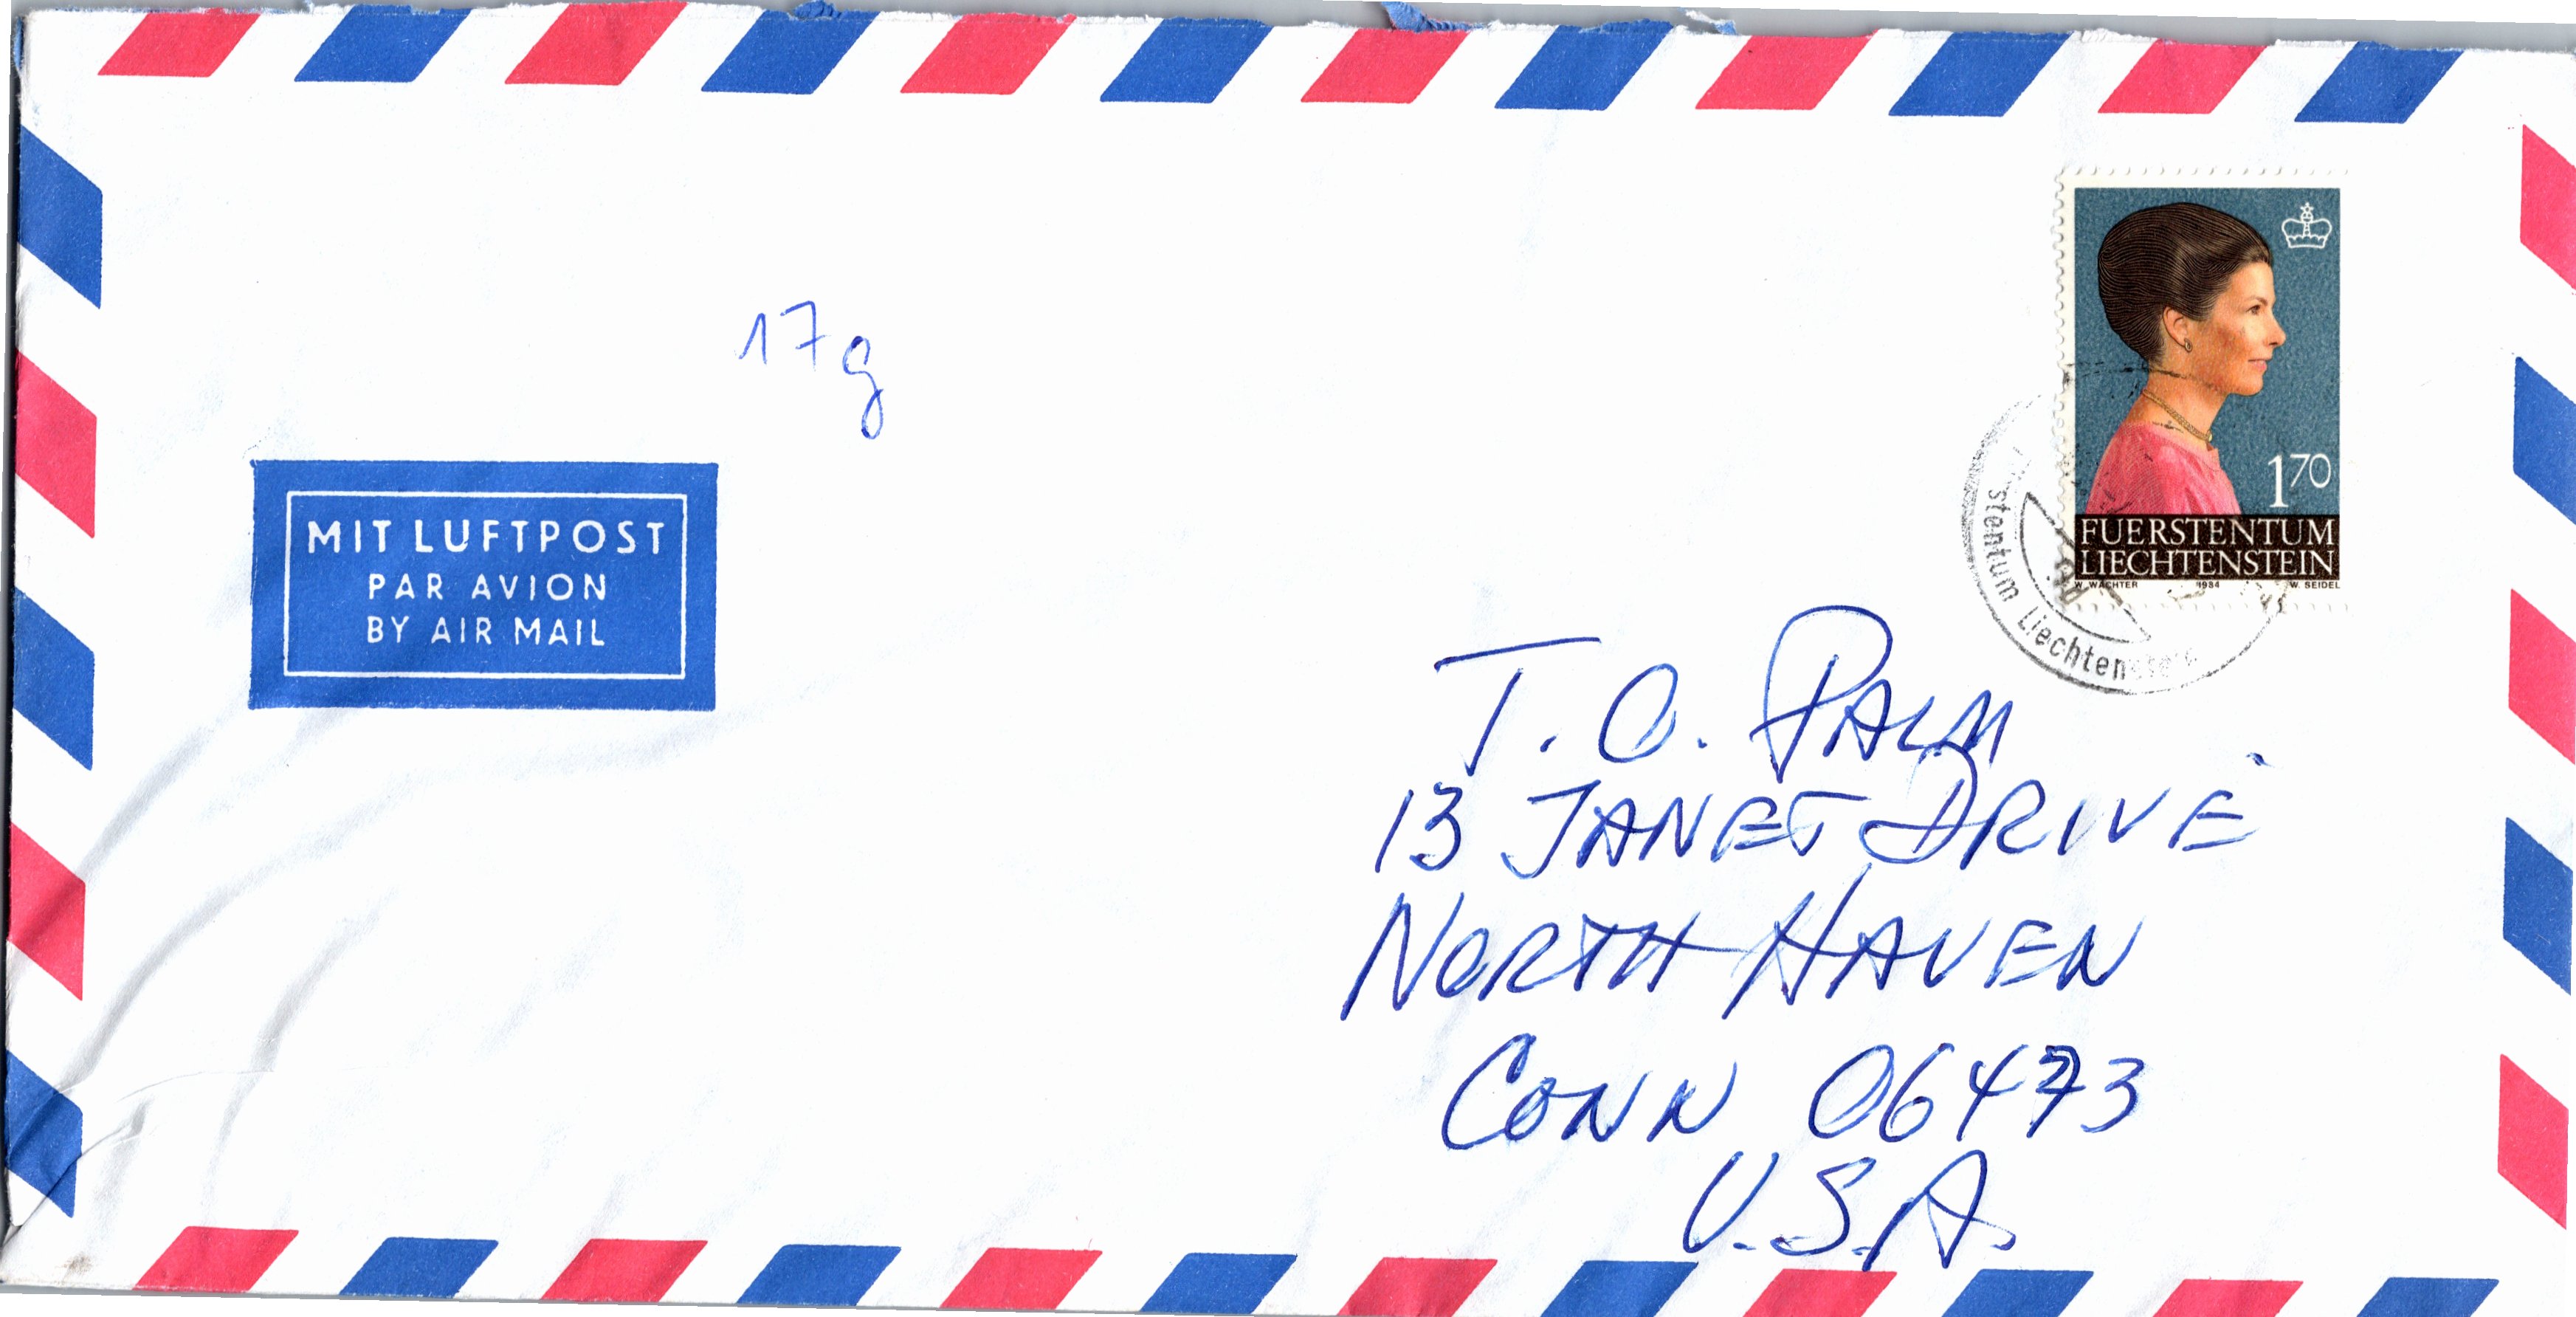 17g
MIT LUFTPOST
PAR AVION
BY AIR MAIL
170
FUERSTENTUM
LIECHTENSTEIN
W. WACHTER 1984 W. SEIDEL
stentum Liechtenstein
T. C. PALM
13 JANET DRIVE
NORTH HAVEN
CONN 06473
U.S.A.